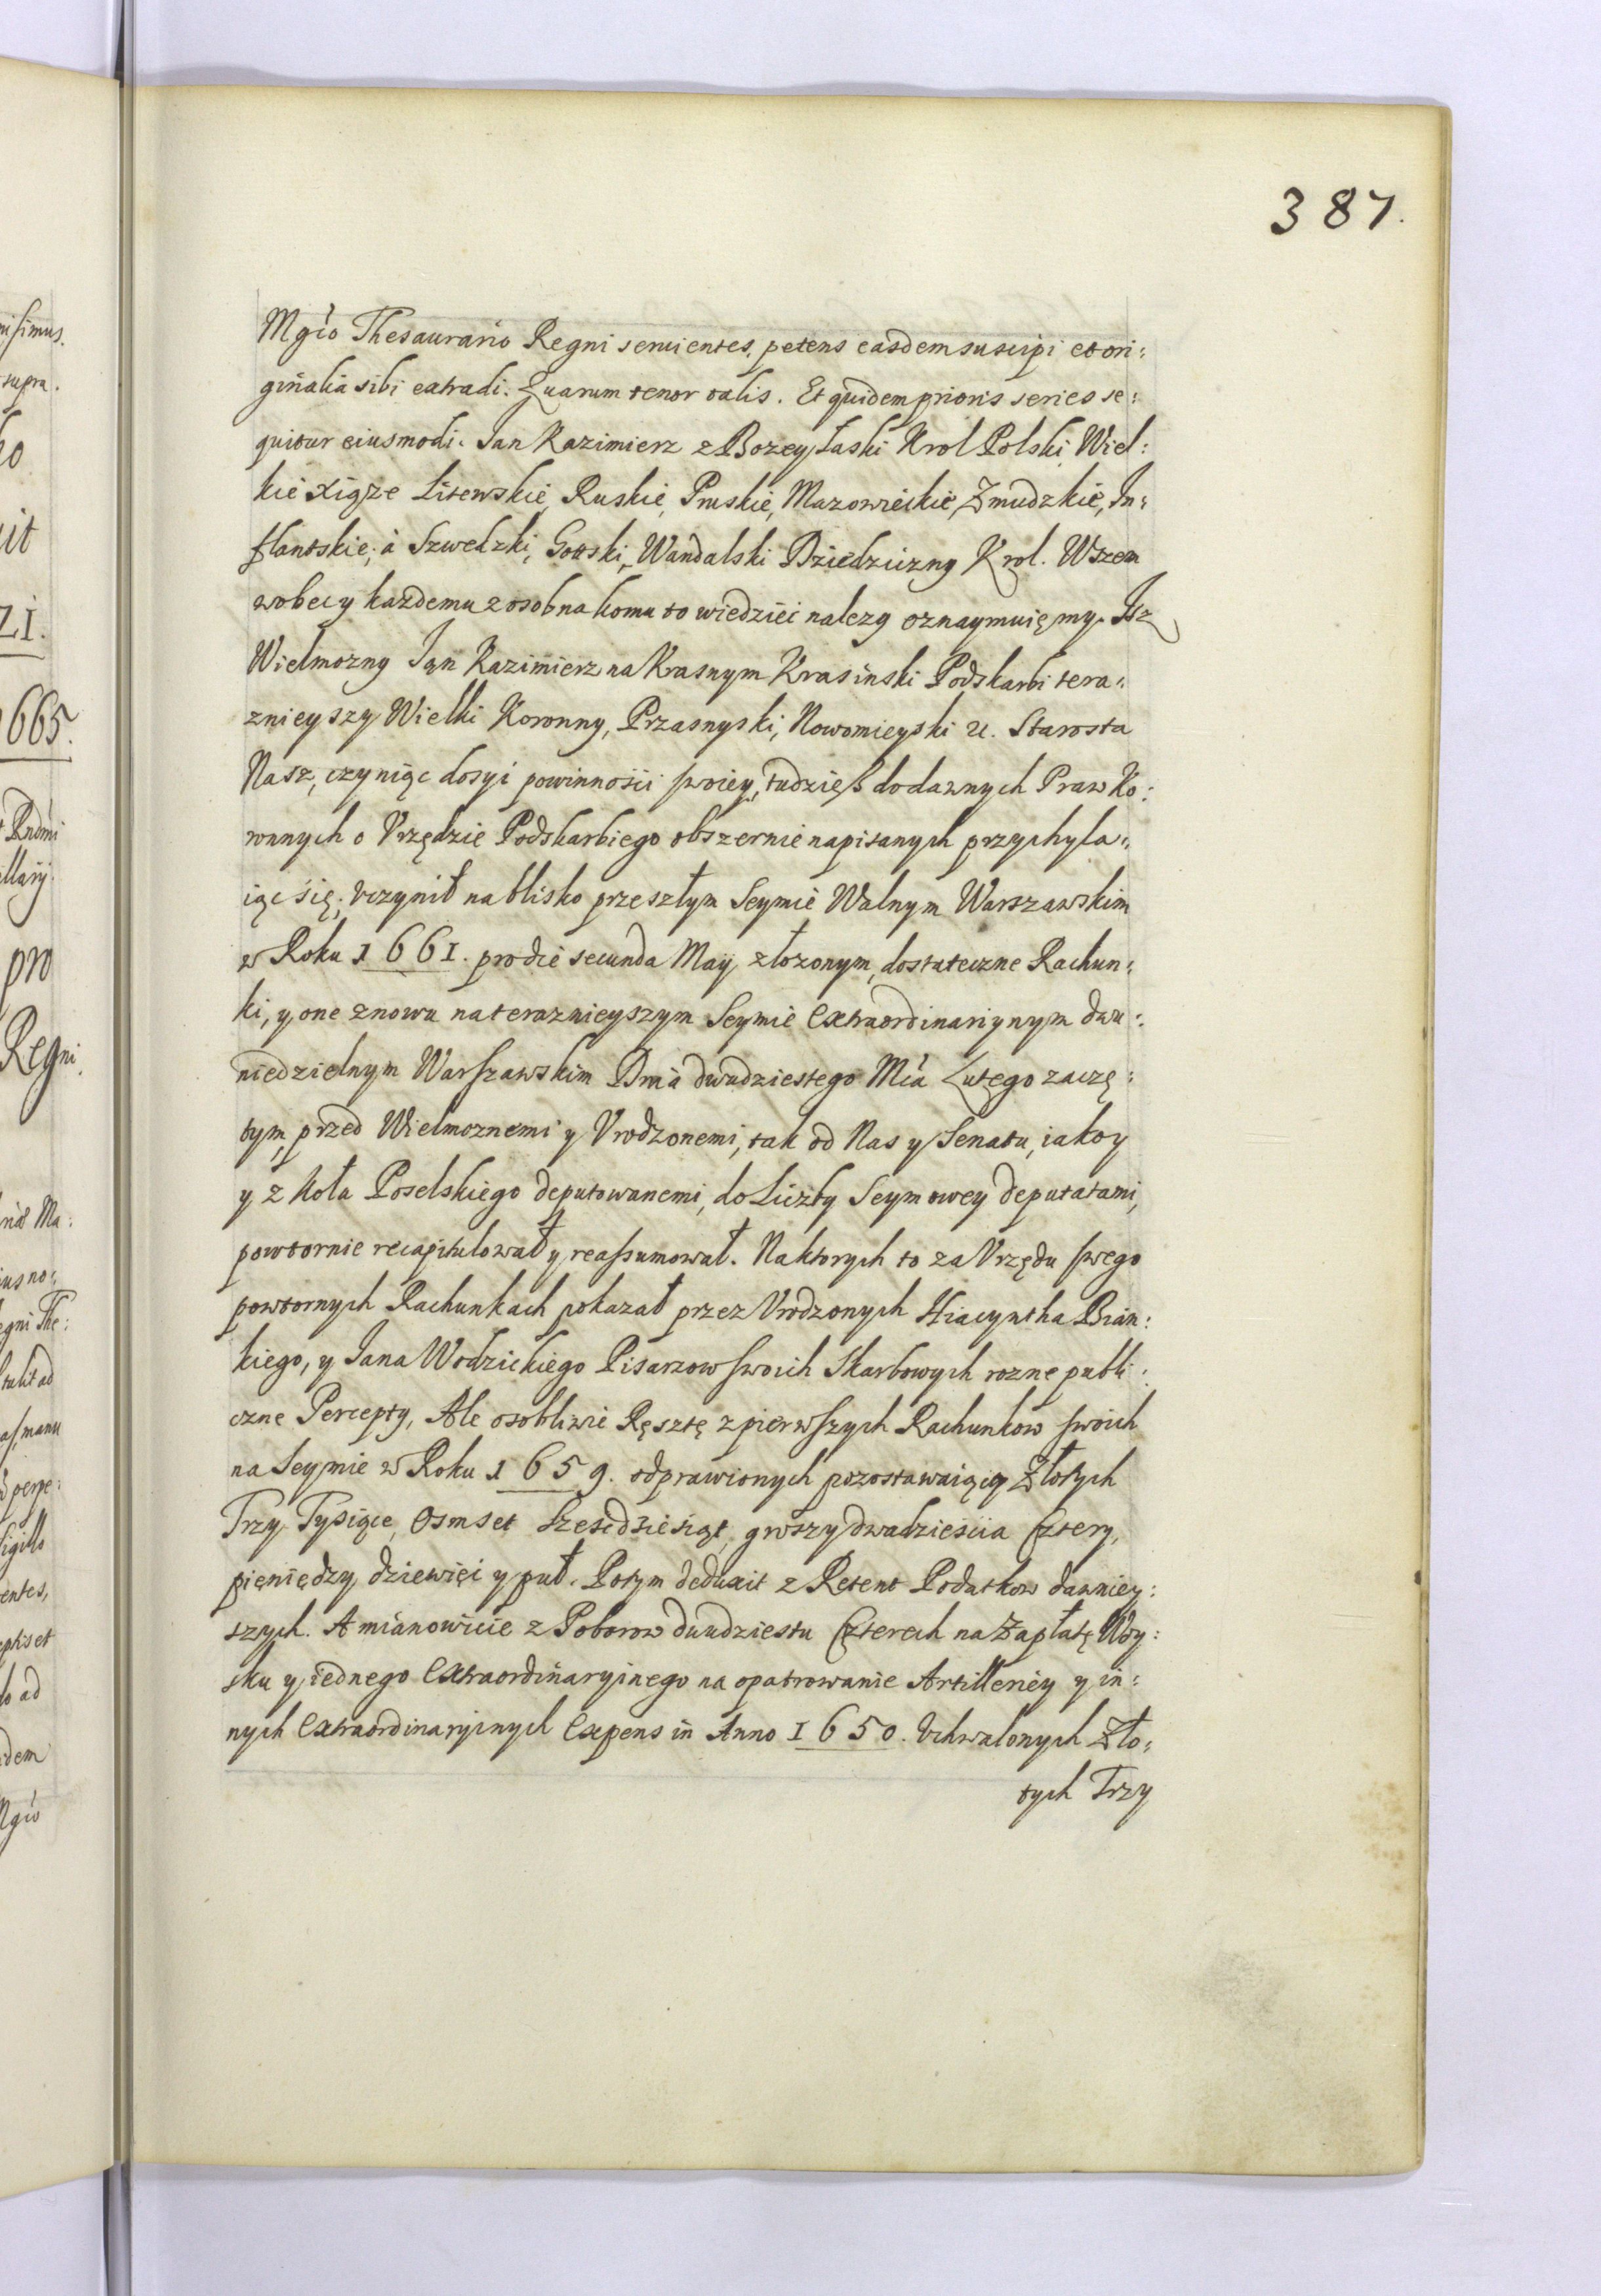 387.
Mgcio Thesaurario Regni seruientes, petens easdem suscipi et ori:
ginalia sibi extradi. Quarum tenor talis. Et quidem prioris series se:
quitur eiusmodi. Jan Kazimierz z Bozey łaski Krol Polski, Wiel:
kie Xiąze Litewskie, Ruskie, Pruskie, Mazowieckie, Zmudzkie, In:
flantskie, à Szwedzki, Gottski, Wandalski Dziedziczny Krol. Wszem
wobec y kazdemu z osobna komu to wiedziec nalezy oznaymuięmy. Isz
Wielmozny Jąn Kazimierz na Krasnym Krasinski Podskarbi tera:
znieyszy Wielki Koronny, Przasnyski, Nowomieyski etc. Starosta
Nasz, czyniąc dosyc powinnosci swoiey, tudzieß do dawnych Praw Ko:
ronnych o Vrzędzie Podskarbiego obszernie napisanych przychyla:
iąc się, vczynił na blisko przeszłym Seymie Walnym Warszawskim
w Roku 1661. pro die secunda Maij złozonym, dostateczne Rachun:
ki, y one znowu na teraznieyszym Seymie Extraordinariynym dwu:
niedzielnym Warszawskim Dnia dwudziestego Mca Lutego zaczę:
tym, przed Wielmoznemi y Vrodzonemi, tak od Nas y Senatu, iako y
y z Koła Poselskiego deputowanemi, do Liczby Seymowey deputatami,
powtornie recapitulował y reassumował. Na ktorych to za Vrzędu swego
powtornych Rachunkach pokazał przez Vrodzonych Hiacyntha Bian:
kiego, y Jana Wodzickiego Pisarzow swoich Skarbowych rozne publi:
czne Percepty, Ale osobliwie Ręsztę z pierwszych Rachunkow swoich
na Seymie w Roku 1659. odprawionych pozostawaiącą Złotych
Trzy Tysiące, Osmset Szescdziesiąt, groszy dwadziescia Cztery,
pięniędzy dziewięc y puł. Potym deduxit z Retent Podatkow dawniey:
szych. A mianowicie z Poborow dwudziestu Czterech na Zapłatę Woy:
sku y iednego Extraordinaryinego na opatrowanie Artilleriey y in:
nych Extraordinaryinych Expens in Anno 1650. Vchwalonych Zło:
tych Trzy